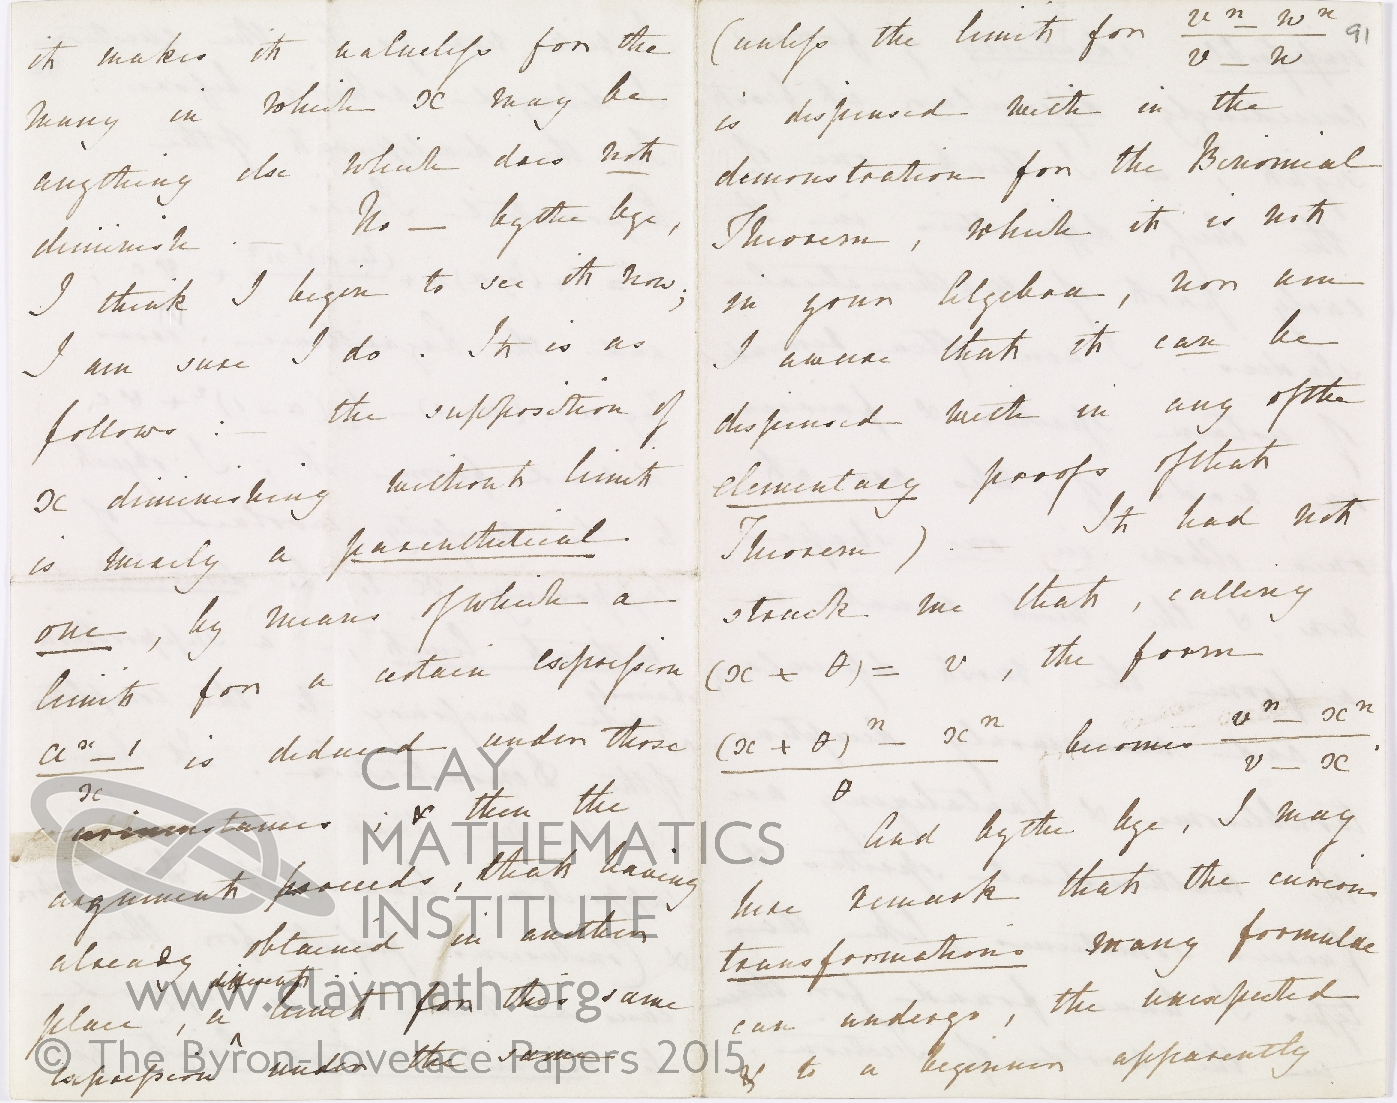 it makes it valueless for the
many in which x may be
anything else which does not
diminish. — No — by the bye,
I think I begin to see it now;
I am sure I do. It is as
follows: — the supposition of
x diminishing without limit
is merely a parenthetical
one, by means of which a
limit for a certain expression
a^x − 1 / x is deduced under those
circumstances; & then the
argument proceeds, that having
already obtained in another
place, a different limit for this same
expression under the same
(unless the limit for v^n − w^n / v − w
is dispensed with in the
demonstration for the Binomial
Theorem, which it is not
in your Algebra, nor am
I aware that it can be
dispensed with in any of the
elementary proofs of that
Theorem). — It had not
struck me that, calling
(x + θ) = v, the form
(x + θ)^n − x^n / θ becomes v^n − x^n / v − x.
And by the bye, I may
here remark that the curious
transformations many formulae
can undergo, the unexpected
& to a beginner apparently
91
CLAY
MATHEMATICS
INSTITUTE
www.claymath.org
© The Byron-Lovelace Papers 2015